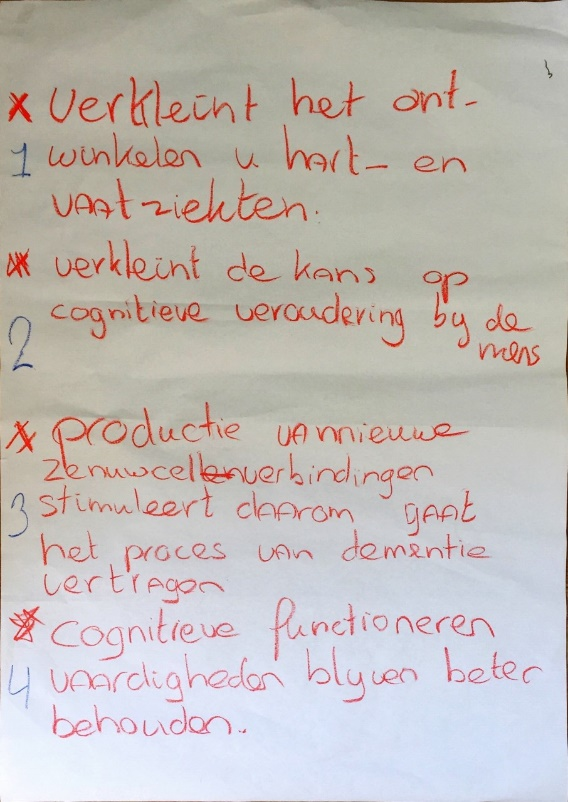 x verkleint het ont-
1 winkelen v. hart- en
vaatziekten.
x verkleint de kans op
cognitieve veroudering by de
2 mens
x productie van nieuwe
zenuwcelverbindingen
3 stimuleert daarom gaat
het proces van dementie
vertragen
x cognitieve functioneren
4 vaardigheden blyven beter
behouden.